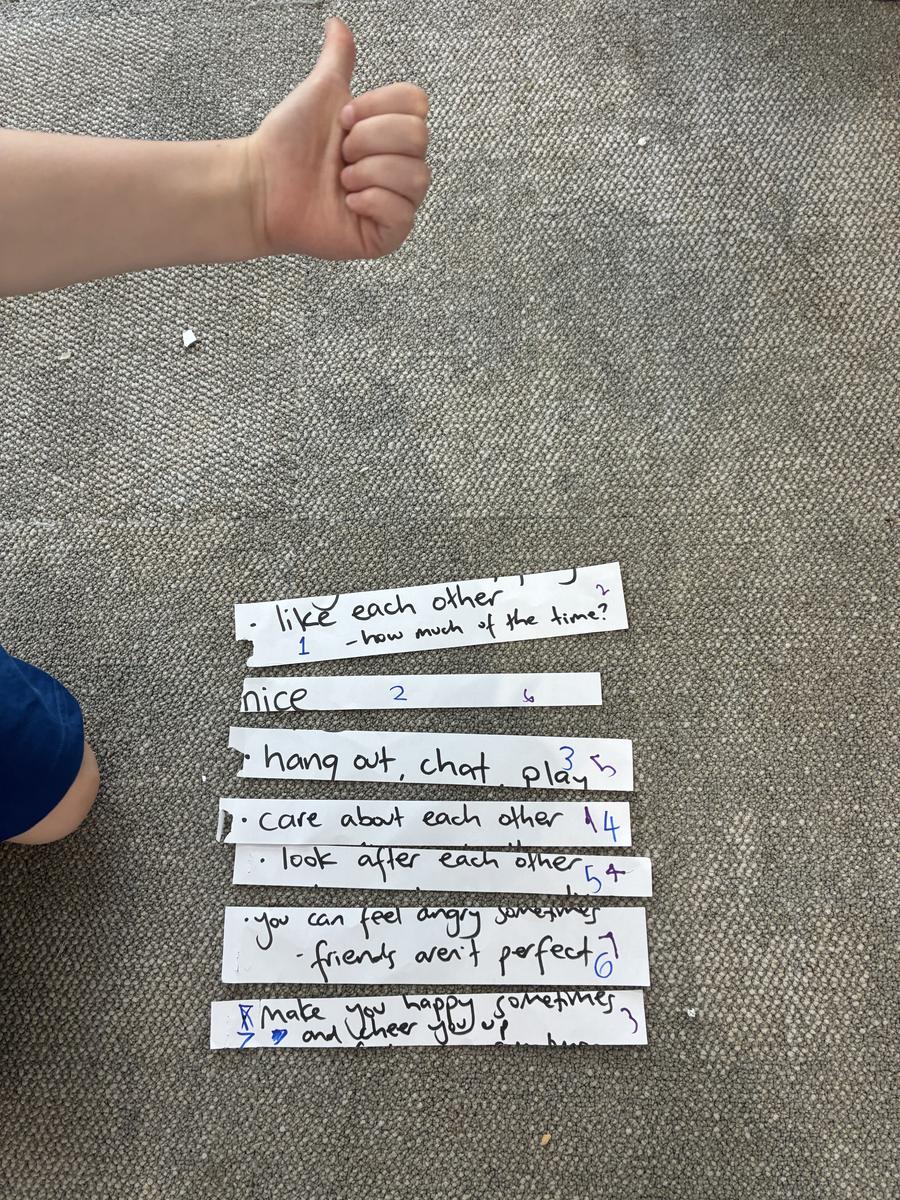 · like each other 2
1 - how much of the time?
nice 2 6
· hang out, chat, play 3 5
· care about each other 1 4
· look after each other 5 4
· you can feel angry sometimes
- friends aren't perfect 6 7
8 Make you happy sometimes 3
7 and cheer you up